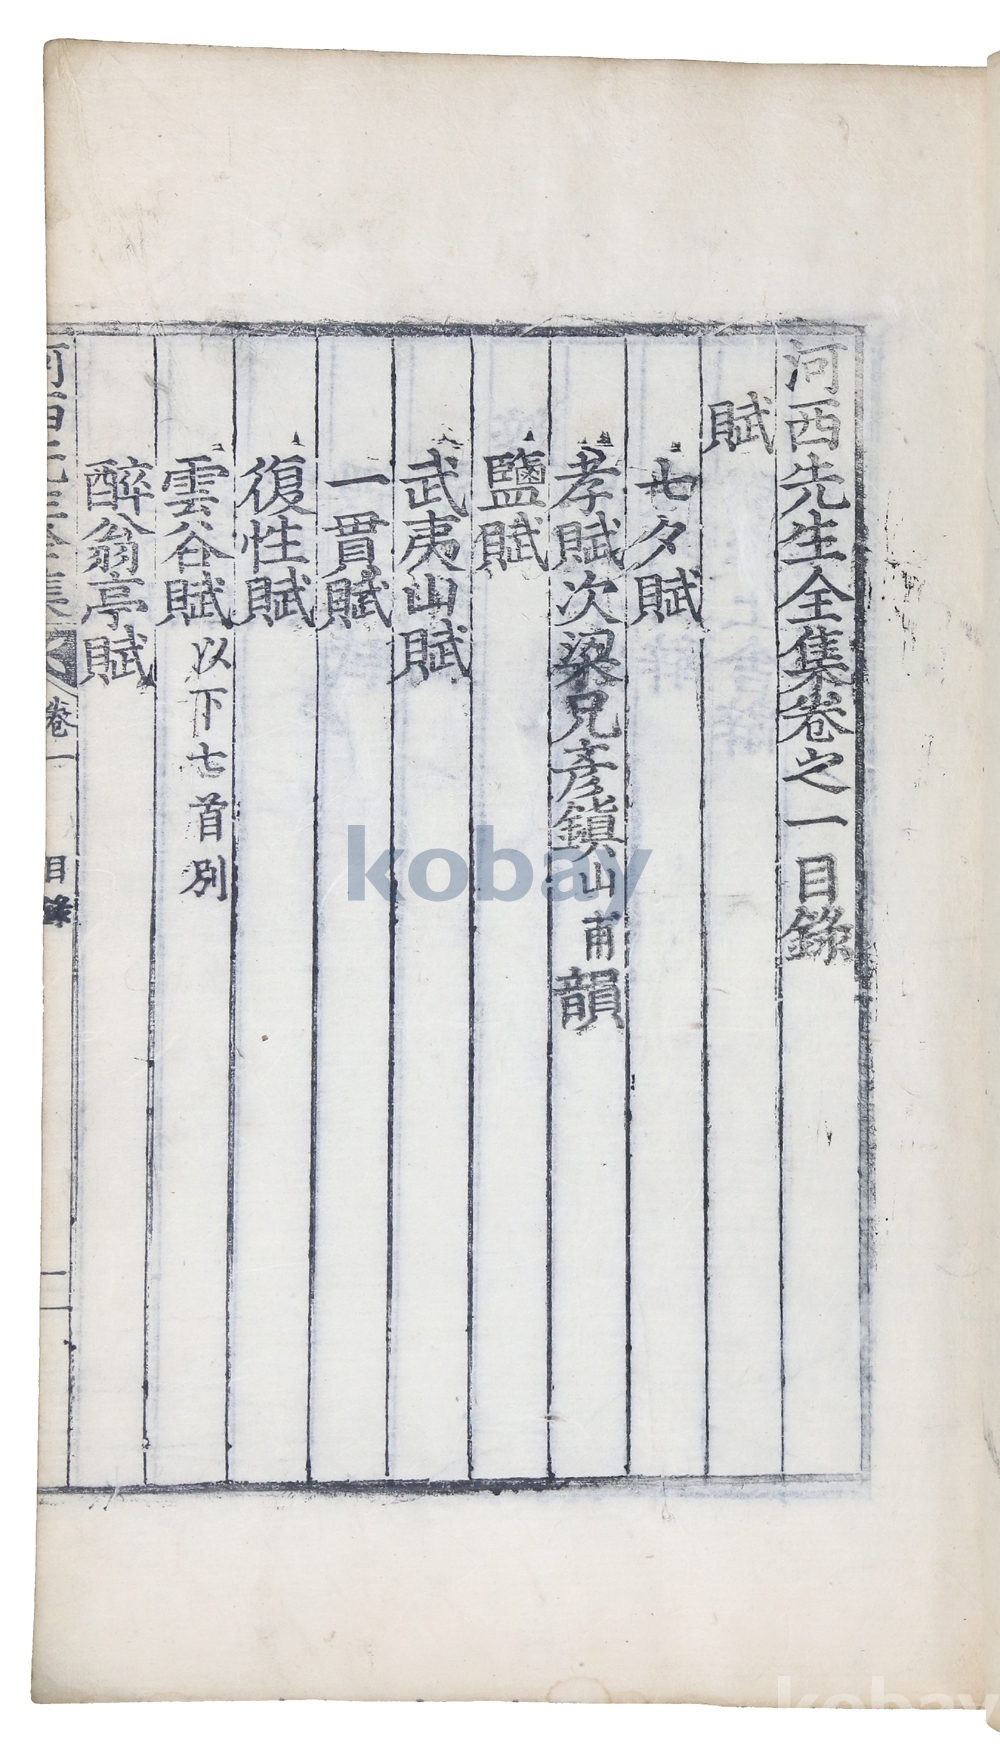 河西先生全集卷之一目錄
賦
七夕賦
孝賦次梁兄彥鎭山甫韻
鹽賦
武夷山賦
一貫賦
復性賦
雲谷賦以下七首別
醉翁亭賦
河西先生全集 卷一 目錄 一
kobay
kobay